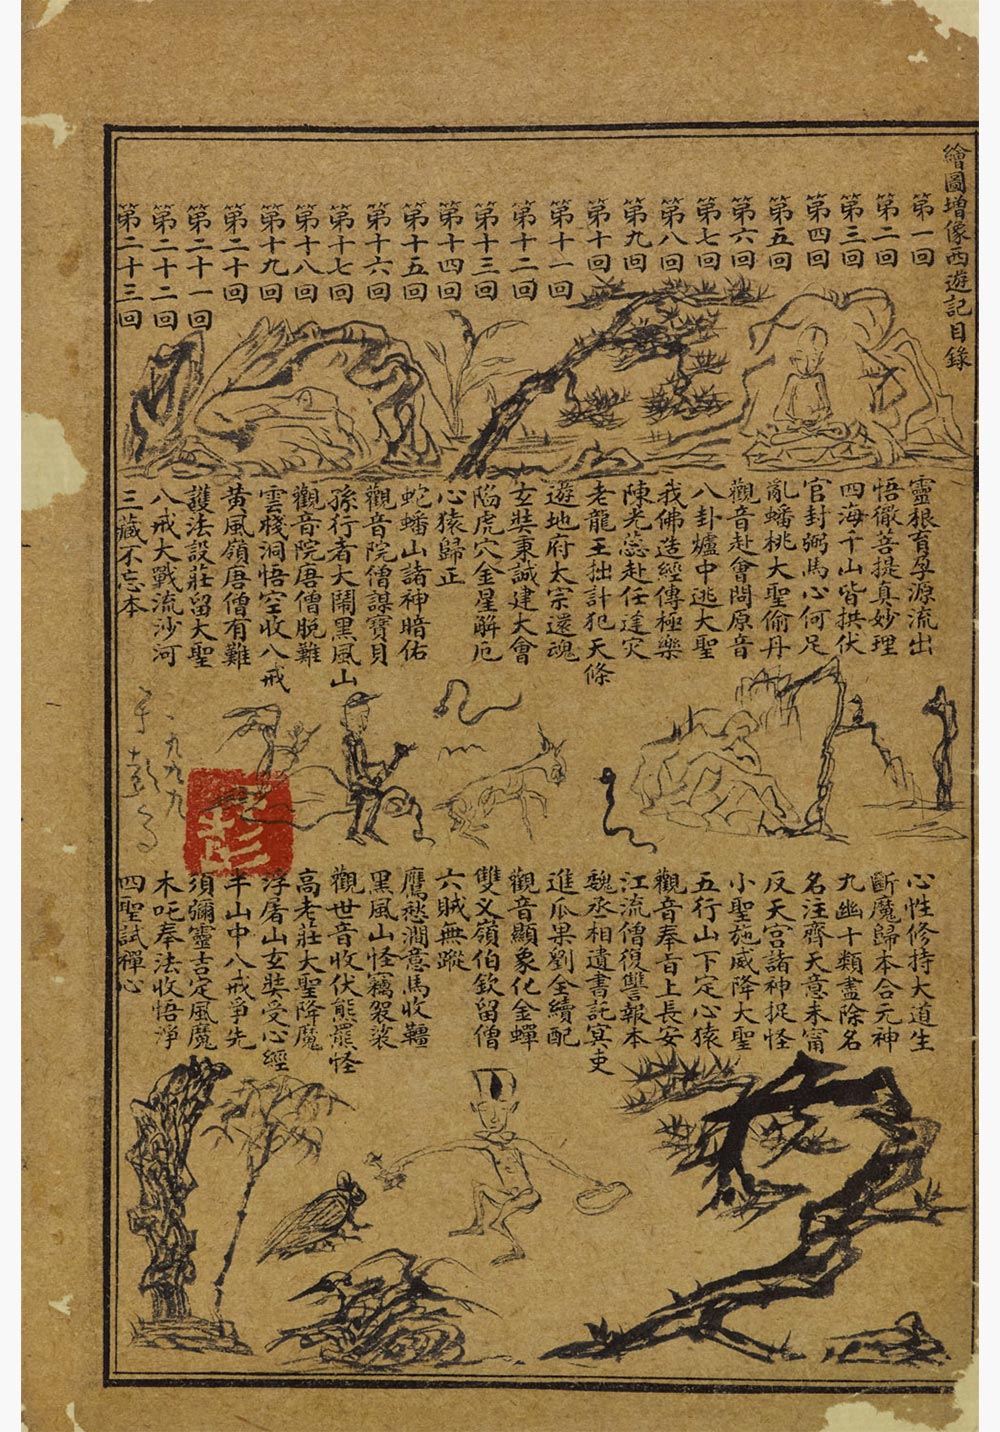 繪圖增像西遊記目錄
第一回 靈根育孕源流出 心性修持大道生
第二回 悟徹菩提真妙理 斷魔歸本合元神
第三回 四海千山皆拱伏 九幽十類盡除名
第四回 官封弼馬心何足 名注齊天意未甯
第五回 亂蟠桃大聖偷丹 反天宮諸神捉怪
第六回 觀音赴會問原音 小聖施威降大聖
第七回 八卦爐中逃大聖 五行山下定心猿
第八回 我佛造經傳極樂 觀音奉旨上長安
第九回 陳光蕊赴任逢灾 江流僧復讐報本
第十回 老龍王拙計犯天條 魏丞相遺書託冥吏
第十一回 遊地府太宗還魂 進瓜果劉全續配
第十二回 玄奘秉誠建大會 觀音顯象化金蟬
第十三回 陷虎穴金星解厄 雙义嶺伯欽留僧
第十四回 心猿歸正 六賊無蹤
第十五回 蛇蟠山諸神暗佑 鷹愁澗意馬收韁
第十六回 觀音院僧謀寶貝 黑風山怪竊袈裟
第十七回 孫行者大鬧黑風山 觀世音收伏熊羆怪
第十八回 觀音院唐僧脫難 高老莊大聖降魔
第十九回 雲棧洞悟空收八戒 浮屠山玄奘受心經
第二十回 黃風嶺唐僧有難 半山中八戒爭先
第二十一回 護法設莊留大聖 須彌靈吉定風魔
第二十二回 八戒大戰流沙河 木吒奉法收悟淨
第二十三回 三藏不忘本 四聖試禪心
一九九九
彭